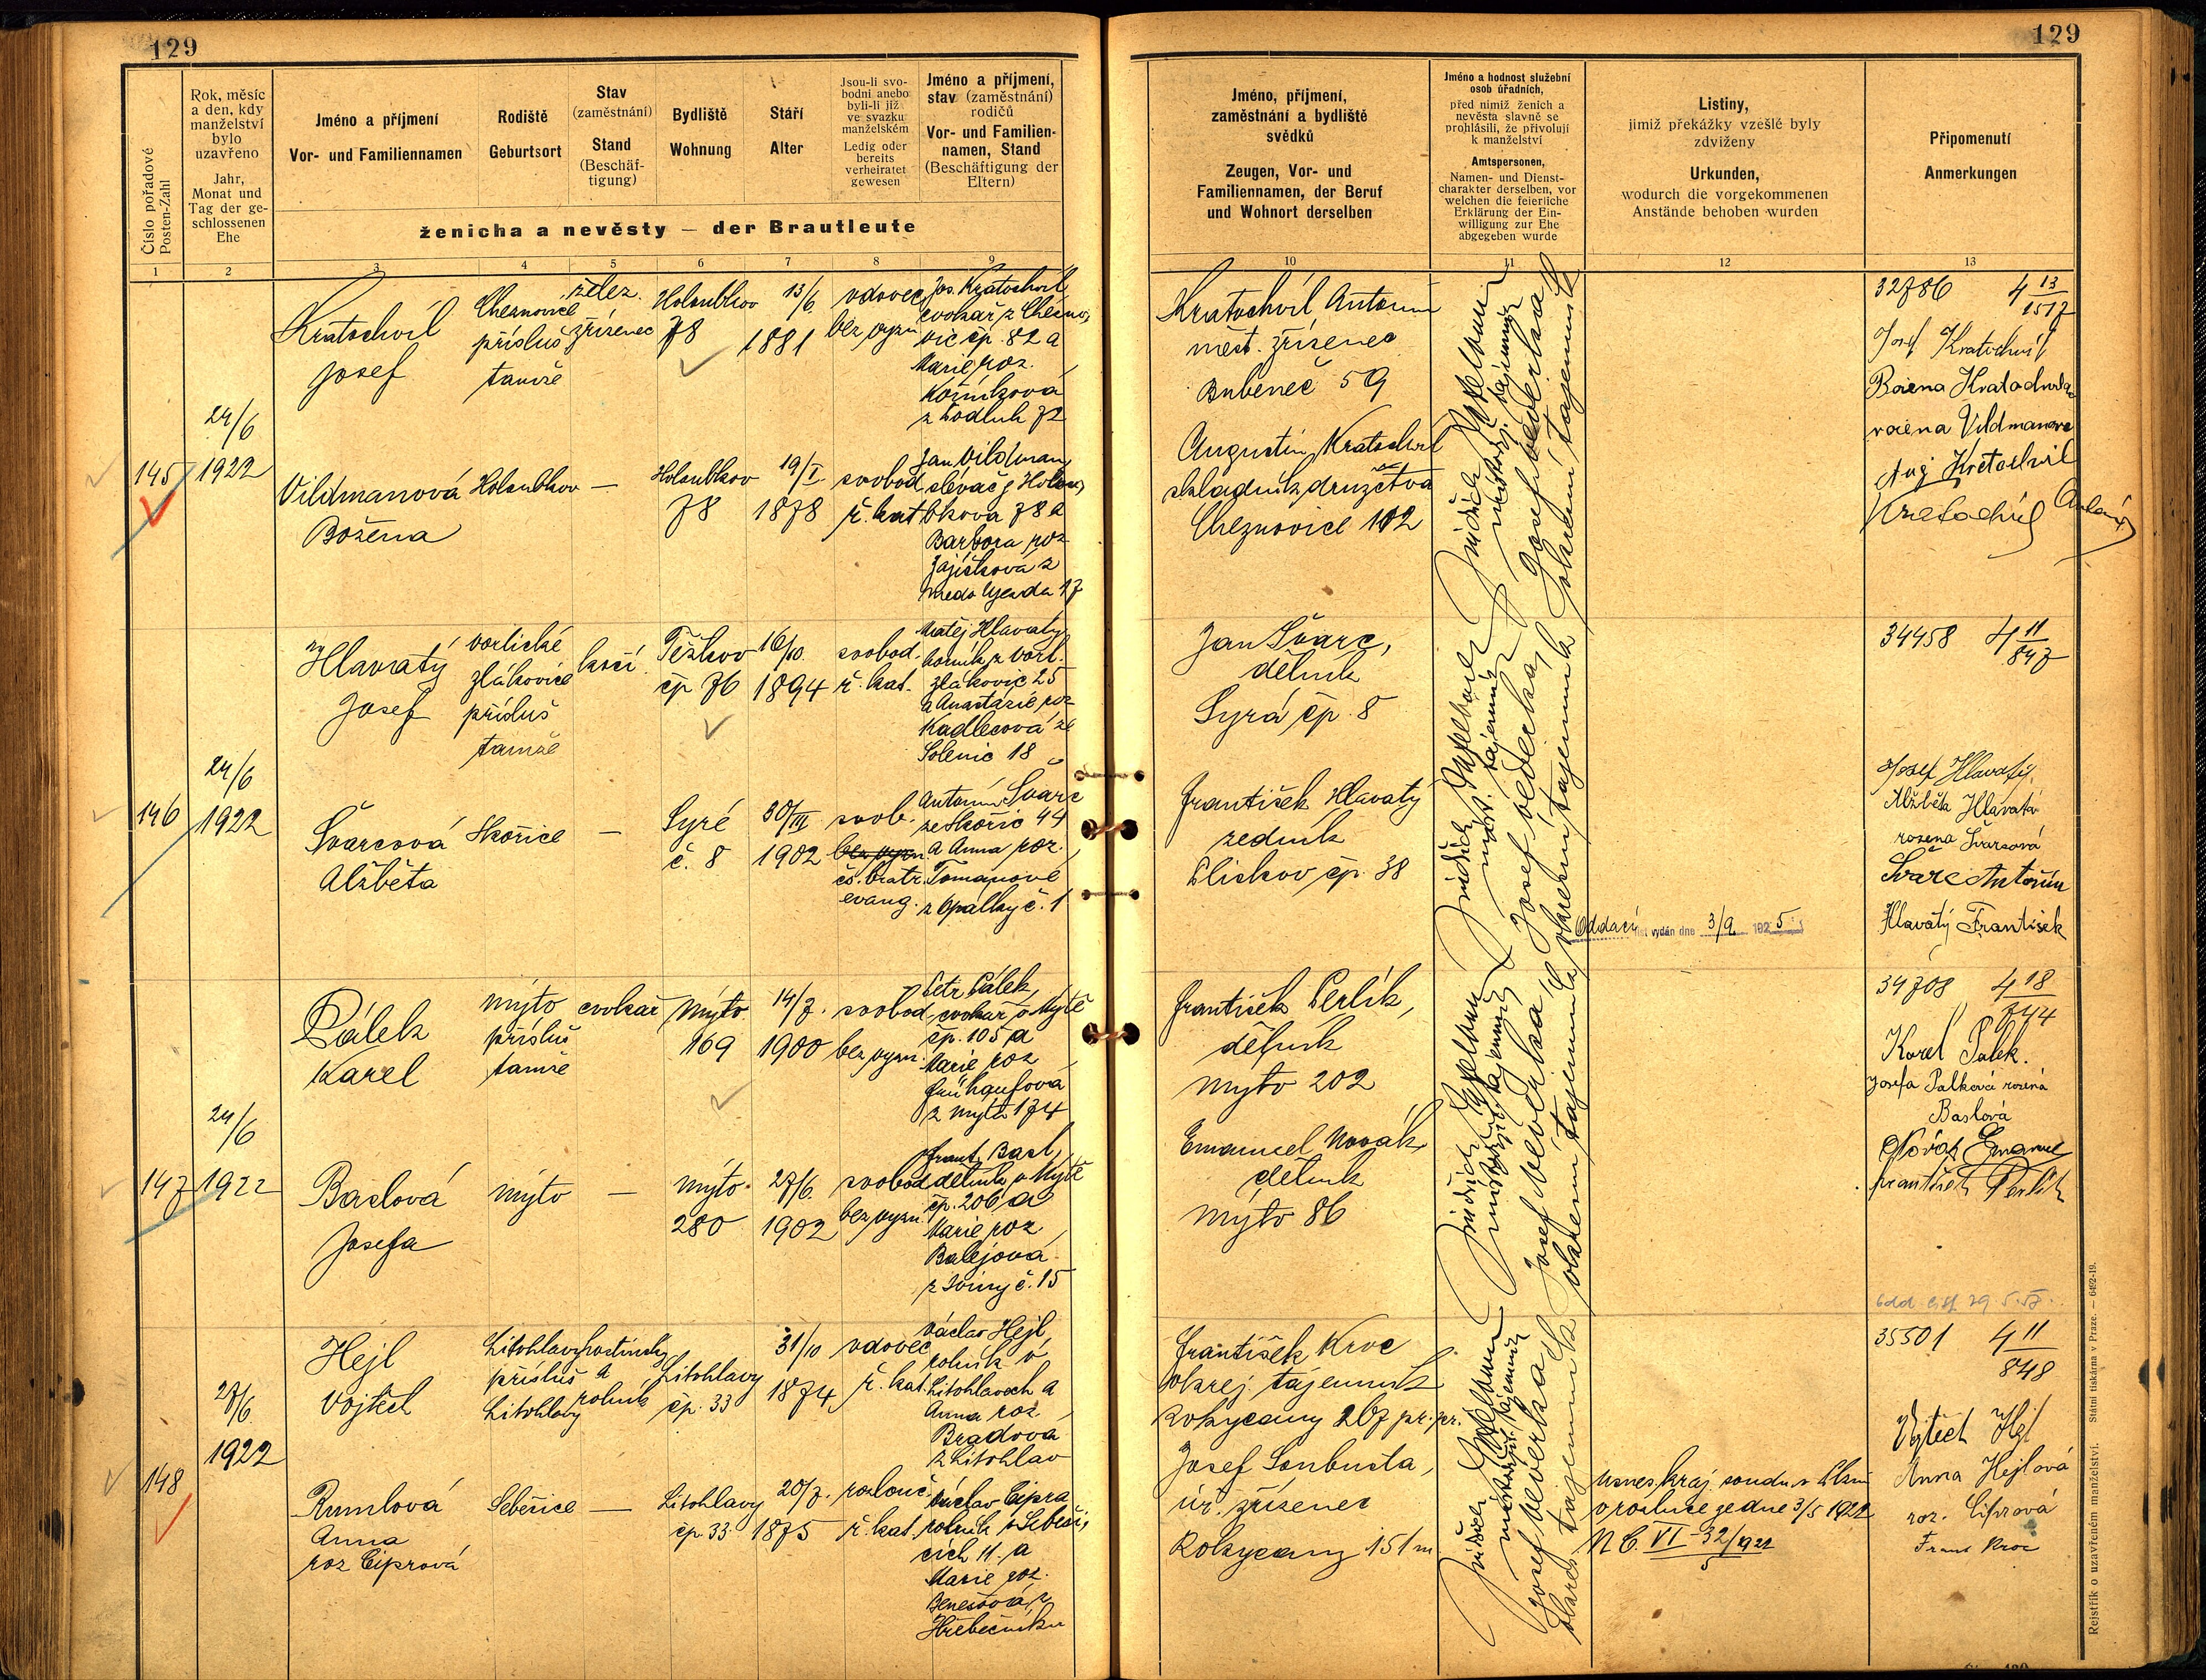 129
Číslo pořadové
Posten-Zahl
Rok, měsíc
a den, kdy
manželství
bylo
uzavřeno
Jahr,
Monat und
Tag der ge-
schlossenen
Ehe
Jméno a příjmení
Vor- und Familiennamen
Rodiště
Geburtsort
Stav
(zaměstnání)
Stand
(Beschäf-
tigung)
Bydliště
Wohnung
Stáří
Alter
Jsou-li svo-
bodni anebo
byli-li již
ve svazku
manželském
Ledig oder
bereits
verheiratet
gewesen
Jméno a příjmení,
stav (zaměstnání)
rodičů
Vor- und Familien-
namen, Stand
(Beschäftigung der
Eltern)
ženicha a nevěsty — der Brautleute
1 2 3 4 5 6 7 8 9
145
24/6
1922
Kratochvíl
Josef
Cheznovice
přísluš
tamže
želez.
zřízenec
Holoubkov
78
13/6
1881
vdovec
bez vyzn
Jos. Kratochvíl
cvokař z Chezno-
vic čp. 82 a
Marie roz.
z Podluh 72
Vildmanová
Božena
Holoubkov
—
Holoubkov
78
19/I.
1878
svobod.
ř. kat
Jan Vildman,
slévač z Holou-
bkova 78 a
Barbora roz
146
24/6
1922
Hlavatý
Josef
vorlické
zlákovice
přísluš
tamže
kočí
Těškov
čp 76
16/10.
1894
svobod.
ř. kat.
Matěj Hlavatý
horník z vorl.
zlákovic 25
a Anastazie roz
Kadlecová ze
Solenic 18
Švarcová
Alžběta
Skořice
—
Syré
č. 8
30/III
1902
svob.
bez vyzn.
čs. bratr.
evang.
Antonín Švarc
ze Skořic 44
a Anna roz.
Tomanové
z Opálky č. 1
147
24/6
1922
Pálek
Karel
Mýto
přísluš
tamže
cvokař
Mýto
169
14/7.
1900
svobod.
bez vyzn.
Petr Pálek,
cvokař v Mýtě
čp. 105 a
Marie roz
Frühaufová
z Mýta 174
Baslová
Josefa
Mýto
—
Mýto
280
27/6.
1902
svobod
bez vyzn.
Frant. Basl,
dělník v Mýtě
čp. 206 a
Marie roz
Balejová
148
27/6
1922
Hejl
Vojtěch
Litohlavy
přísluš
Litohlavy
hostinský
a
rolník
Litohlavy
čp. 33
31/10
1874
vdovec
ř. kat.
Václav Hejl,
rolník v
Litohlavech a
Anna roz
Bradová
z Litohlav
Rumlová
Anna
roz Ciprová
Sebečice
—
Litohlavy
čp. 33
20/7.
1875
rozlouč.
ř. kat.
Václav Cipra
rolník v Sebeči-
cích 11. a
Marie roz.
Benešová z
129
Jméno, příjmení,
zaměstnání a bydliště
svědků
Zeugen, Vor- und
Familiennamen, der Beruf
und Wohnort derselben
Jméno a hodnost služební
osob úřadních,
před nimiž ženich a
nevěsta slavně se
prohlásili, že přivolují
k manželství
Amtspersonen,
Namen- und Dienst-
charakter derselben, vor
welchen die feierliche
Erklärung der Ein-
willigung zur Ehe
abgegeben wurde
Listiny,
jimiž překážky vzešlé byly
zdviženy
Urkunden,
wodurch die vorgekommenen
Anstände behoben wurden
Připomenutí
Anmerkungen
10 11 12 13
Kratochvíl Antonín
měst. zřízenec
Bubeneč 59
Augustin Kratochvíl
skladník družstva
Cheznovice 102
Josef Veverka
okresní tajemník
32786 4 13/1517
Josef Kratochvíl
Božena Kratochvílová
rožena Vildmanova
Aug Kratochvil
Kratochvíl Antonín
Jan Švarc,
dělník
Syrá čp. 8
František Hlavatý
zedník
Plískov čp. 38
Josef Veverka
okresní tajemník
Oddací list vydán dne 3/9 1925
34458 4 11/847
Josef Hlavatý
Alžběta Hlavatá
rozena Švarcová
Švarc Antonín
Hlavatý František
František Perlík,
dělník
Mýto 202
Emanuel Novák,
dělník
Mýto 86
Josef Veverka
okresní tajemník
34708 4 18/744
Karel Pálek.
Josefa Palková rozená
Baslová
Novák Emanuel
František Perlík
František Kroc
okrej. tajemník
Rokycany 207 pr. pr.
Josef Soubusta,
úř. zřízenec
Rokycany 151 m
Josef Veverka
okres tajemník
Usnes. kraj. soudu v Plzni
o rozluce ze dne 3/5 1922
35501 4 11/848
Vojtěch Hejl
Anna Hejlová
roz. Ciprová
Frant Kroc
Rejstřík o uzavřeném manželství. Státní tiskárna v Praze. — 6492-19.